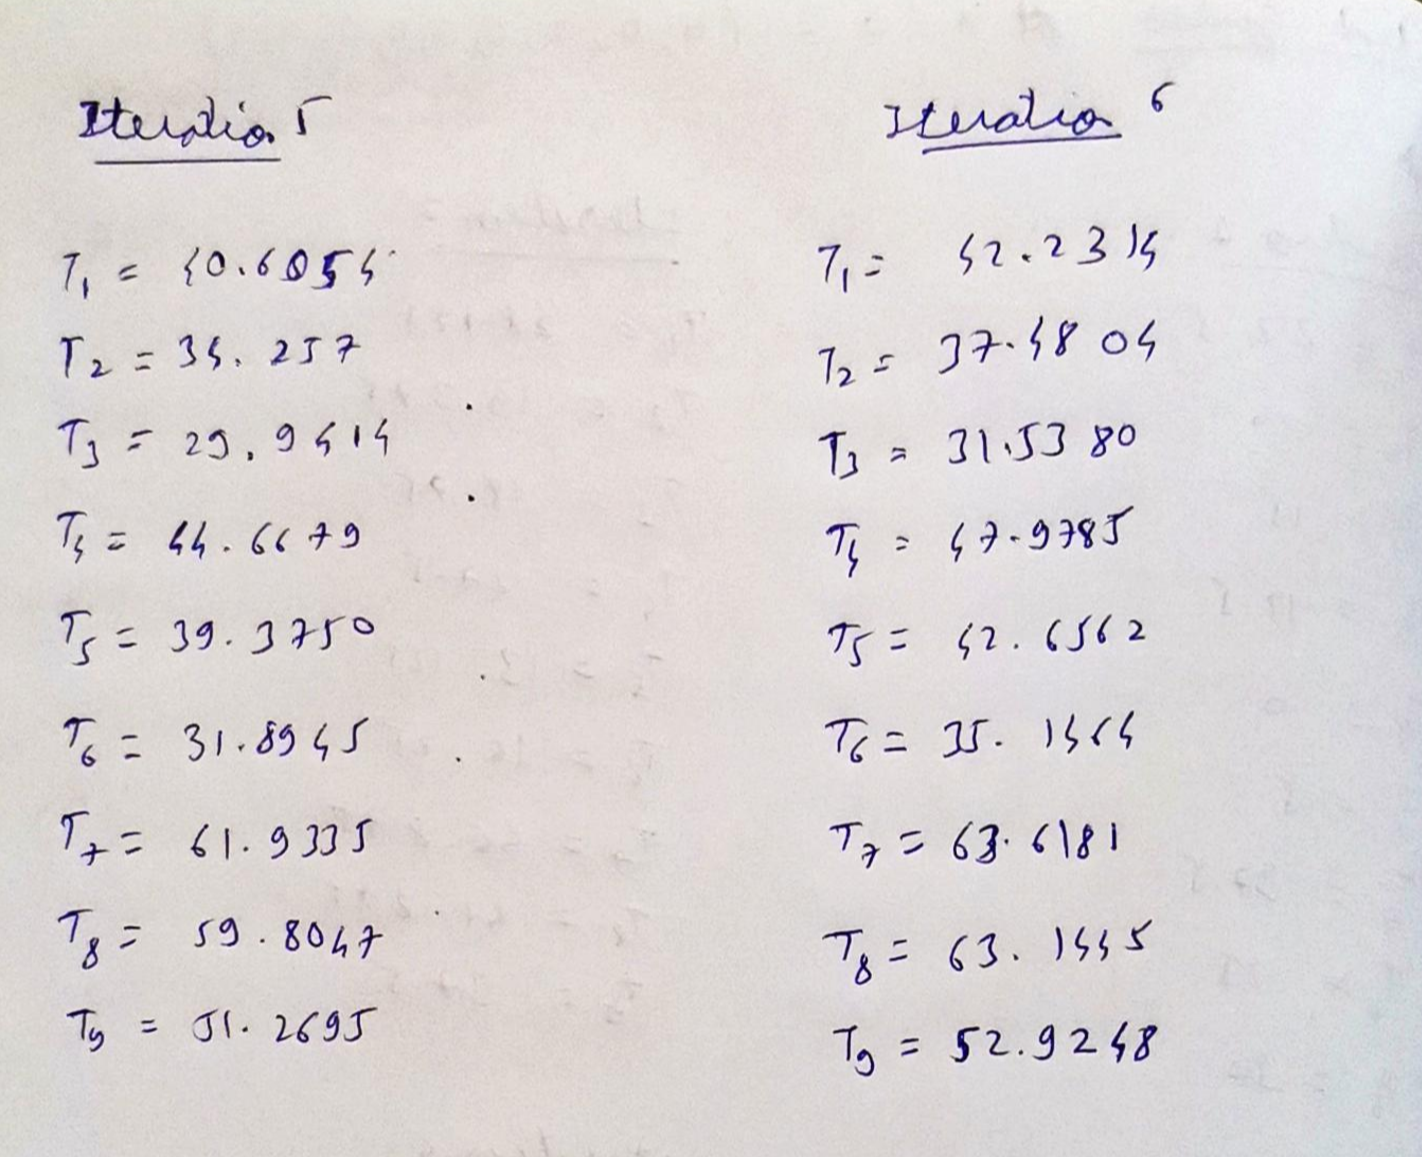 Iteration 5
T1 = 40.6054
T2 = 34.257
T3 = 29.9414
T4 = 44.6679
T5 = 39.3750
T6 = 31.8945
T7 = 61.9335
T8 = 59.8047
T9 = 51.2695
Iteration 6
T1 = 42.2314
T2 = 37.4804
T3 = 31.5380
T4 = 47.9785
T5 = 42.6562
T6 = 35.1464
T7 = 63.6181
T8 = 63.1445
T9 = 52.9248